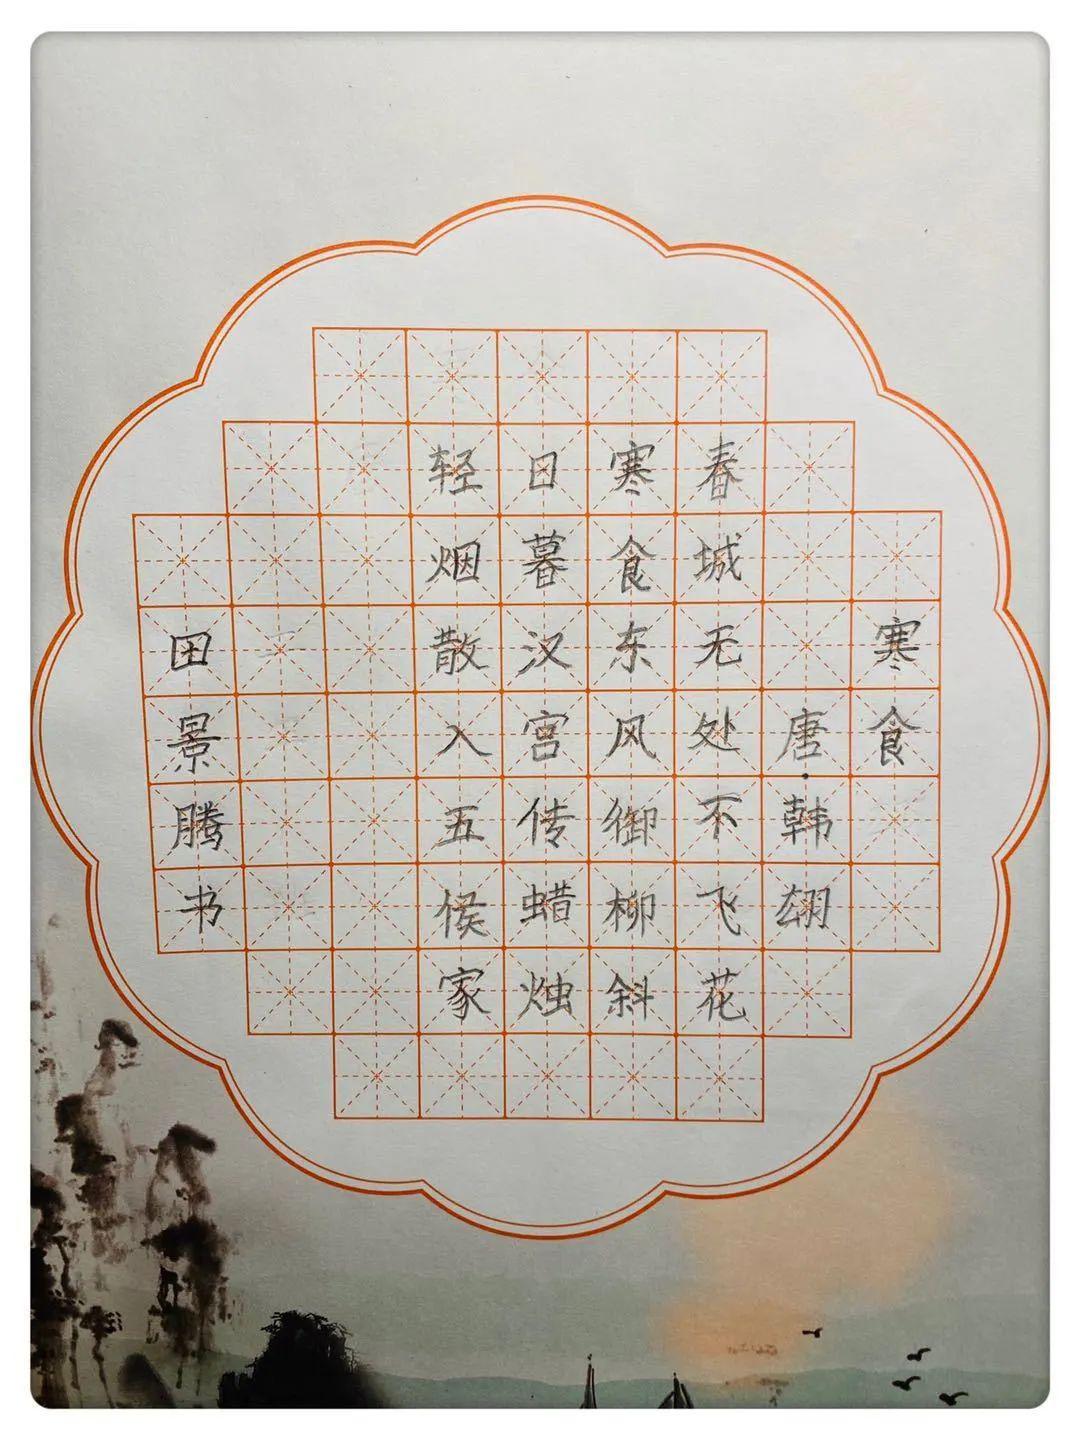 寒食
唐·韩翃
春城无处不飞花
寒食东风御柳斜
日暮汉宫传蜡烛
轻烟散入五侯家
田景腾书